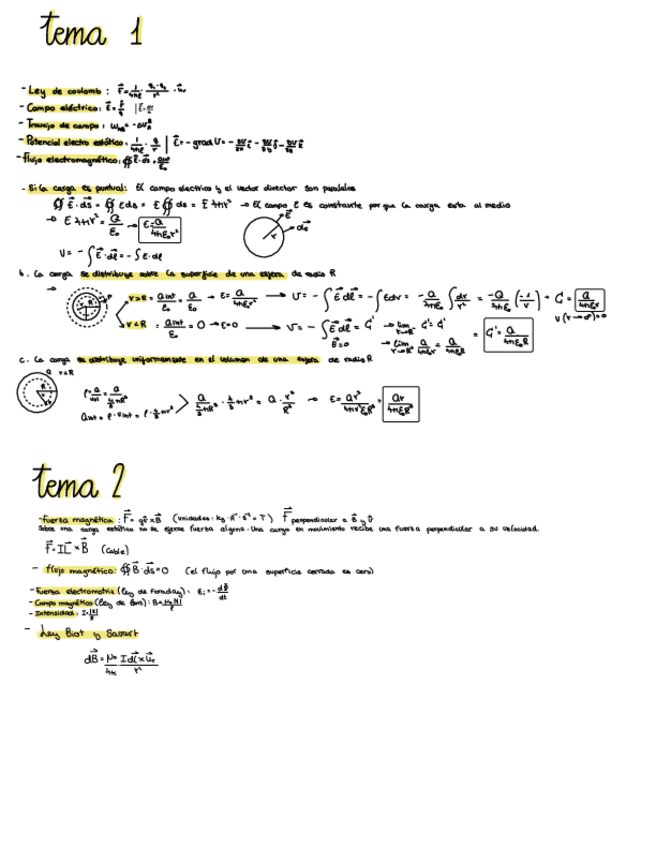 tema 1
- Ley de coulomb : F⃗ = 1/4πε · q₁·q₂/r² · u⃗r
- Campo eléctrico: E⃗ = F⃗/q
- Trabajo de campo :
- Potencial electro estático: 1/4πε · q/r | E⃗ = -grad U = - ∂U/∂x i⃗ - ∂U/∂y j⃗ - ∂U/∂z k⃗
- Flujo electromagnético: ∯ E⃗·ds⃗ = Qint/ε₀
- Si la carga es puntual: El campo electrico y el vector director son paralelos
∯ E⃗·ds⃗ = ∯ Eds = E ∯ ds = E 4πr² → El campo E es constante porque la carga esta al medio
→ E 4πr² = Q/ε₀ → E = Q/4πε₀r²
r E⃗ ds⃗
U = - ∫ E⃗·dl⃗ = - ∫ E·dl
b. La carga se distribuye sobre la superficie de una esfera de radio R
→ r>R = Qint/ε₀ = Q/ε₀ → E = Q/4πε₀r² → U = - ∫ E⃗ dl⃗ = - ∫ Edr = - Q/4πε₀ ∫ dr/r² = -Q/4πε₀ (-1/r) + C = Q/4πε₀r
U(r→∞)=0
r<R : Qint/ε₀ = 0 → E=0 → U = - ∫ E⃗ dl⃗ = C' → lim r→R⁻ C' = C' = C' = Q/4πε₀R
E⃗=0 → lim r→R⁺ Q/4πε₀r = Q/4πε₀R
c. La carga se distribuye uniformemente en el volumen de una esfera de radio R
Q r<R
ρ = Q/vol = Q/(4/3 πR³)
Qint = ρ·Vint = ρ·4/3 πr³ > Q/(4/3 πR³) · 4/3 πr³ = Q · r³/R³ → E = Qr³/4πr²ε₀R³ = Qr/4πε₀R³
tema 2
- fuerza magnética : F⃗ = qv⃗ × B⃗ (unidades: kg · A⁻¹ · s⁻² = T) F⃗ perpendicular a B⃗ y v⃗
Sobre una carga estática no se ejerce fuerza alguna. Una carga en movimiento recibe una fuerza perpendicular a su velocidad.
F⃗ = IL⃗ × B⃗ (Cable)
- flujo magnético: ∯ B⃗ · ds⃗ = 0 (el flujo por una superficie cerrada es cero)
- Fuerza electromotriz (ley de Faraday): εi = - dΦ/dt
- Campo magnético (ley de Am):
- Intensidad:
- Ley Biot y Savart
dB⃗ = μ₀/4π Idl⃗ × u⃗r/r²